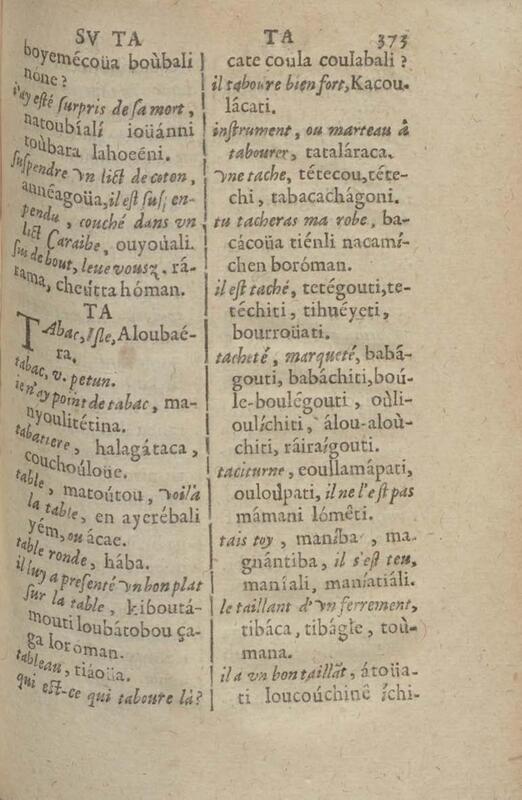 SV TA
TA 373
boyemécoüa boùbali
none ?
i'ay esté surpris de sa mort,
natoubíali ioüánni
toùbara lahoeéni.
suspendre vn lict de coton,
annéagoüa, il est sus; en-
pendu, couché dans vn
lict Caraibe, ouyoúali.
sus de bout, leue vousz. rá-
rama, cheútta hóman.
TA
TAbac, Isle, Aloubaé-
ra.
tabac, v. petun.
ie n'ay point de tabac, ma-
nyoulitétina.
tabatiere, halagátaca,
couchoúloüe.
table, matoútou, voila
la table, en ayerébali
yém, ou ácae.
table ronde, hába.
il luy a presenté vn bon plat
sur la table, kiboutá-
mouti loubátobou ça-
ga loroman.
tableau, tiáoüa.
qui est-ce qui taboure là?
cate coula coulabali ?
il taboure bien fort, Kacou-
lácati.
instrument, ou marteau à
tabourer, tataláraca.
vne tache, tétecou, téte-
chi, tabacachágoni.
tu tacheras ma robe, ba-
cácoüa tiénli nacamí-
chen boróman.
il est taché, tetégouti, te-
téchiti, tihuéyeti,
bourroüati.
tacheté, marqueté, babá-
gouti, babáchiti, boú-
le-boulégouti, oùli-
oulíchiti, álou-aloù-
chiti, ráiraígouti.
taciturne, eoullamápati,
ouloúpati, il ne l'est pas
mámani lómêti.
tais toy, maníba, ma-
gnántiba, il s'est teu,
maníali, maníatiáli.
le taillant d'vn ferrement,
tibáca, tibágle, toù-
mana.
il a vn bon taillãt, átoüa-
ti loucoúchinê íchi-